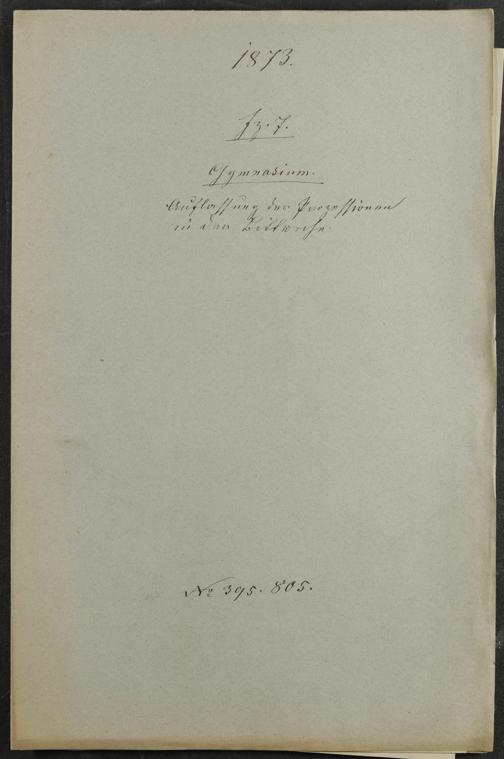 1873.
fz. 7.
Gymnasium.
Auflassung der Prozessionen
in der Bittwoche.
No 395. 805.